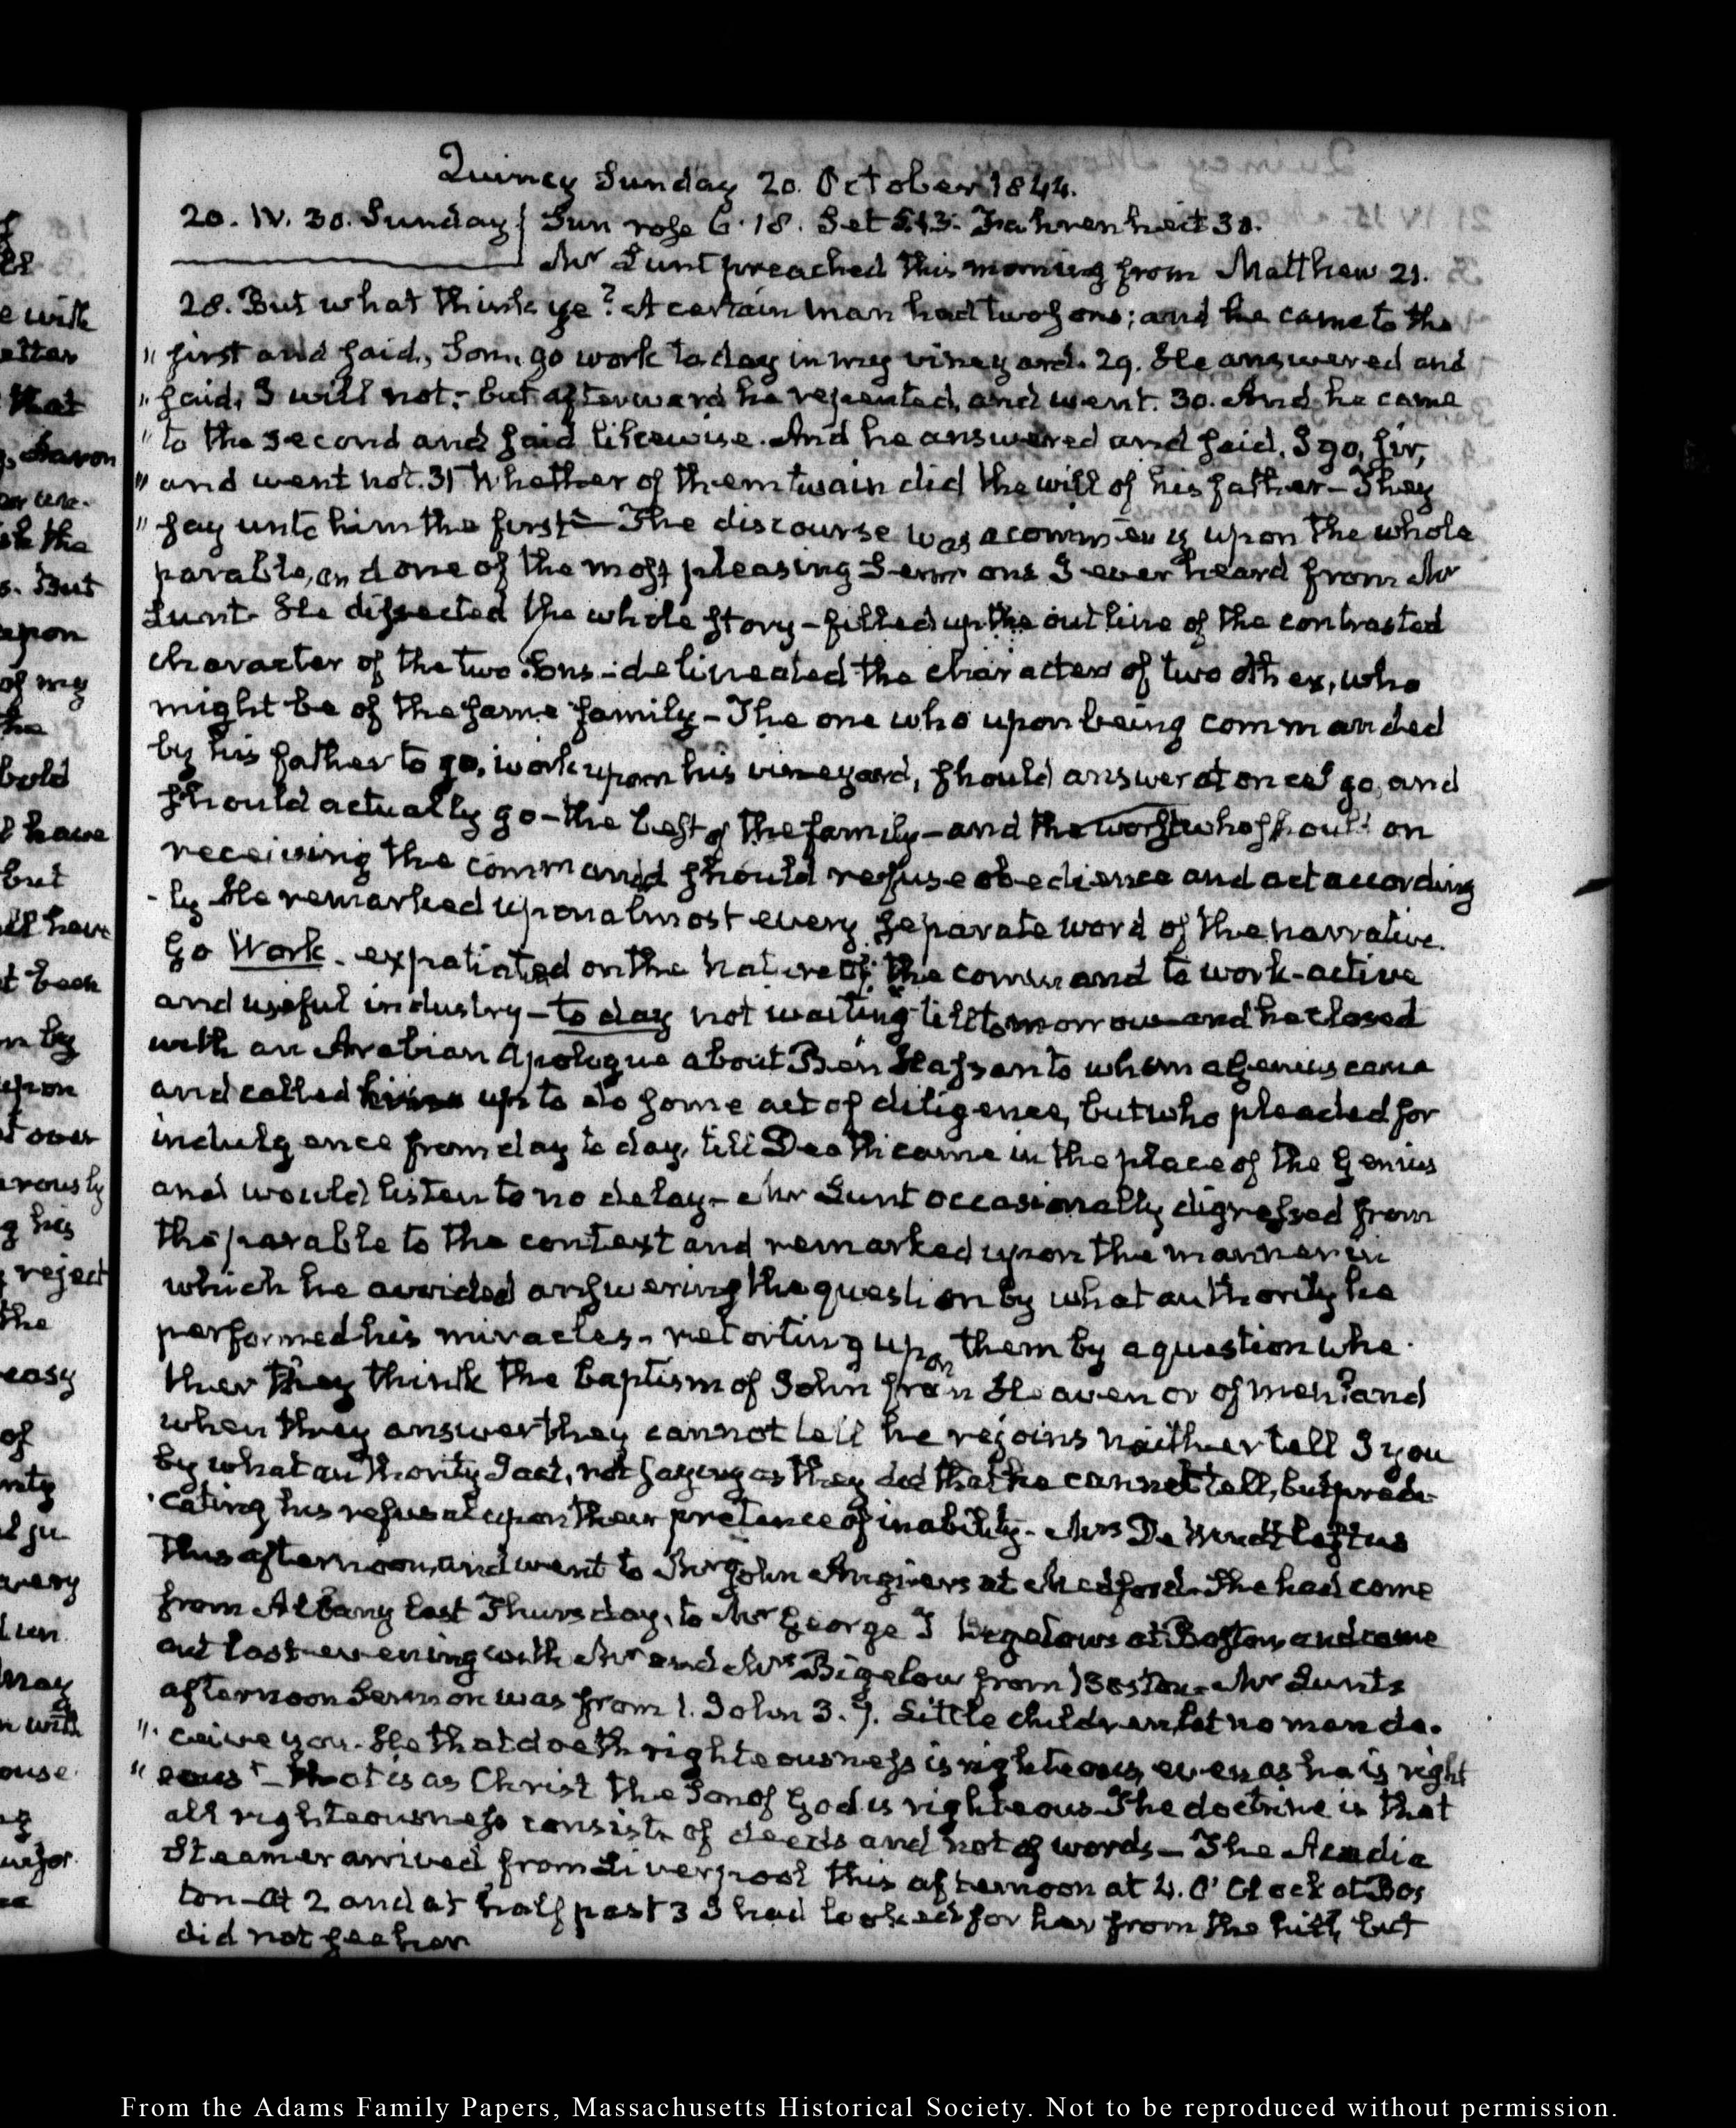 Quincy Sunday 20. October 1844.
20. IV. 30. Sunday Sun rose 6.18. Set 5.13. Fahrenheit 30.
Mr Lunt preached this morning from Matthew 21.
28. But what think ye? A certain man had two sons; and he came to the
" first and said, Son, go work to day in my vineyard. 29. He answered and
" said, I will not: but afterward he repented, and went. 30. And he came
" to the second and said likewise. And he answered and said, I go, sir,
" and went not. 31 Whether of them twain did the will of his father— They
" say unto him the first"— The discourse was a commentary upon the whole
parable, and one of the most pleasing Sermons I ever heard from Mr
Lunt. He dissected the whole story— filled up the outline of the contrasted
character of the two Sons— delineated the character of two others, who
might be of the same family— The one who upon being commanded
by his father to go, work upon his vineyard, should answer at once I go, and
should actually go— the best of the family— and the worst who should on
receiving the command should refuse obedience and act according
-ly He remarked upon almost every separate word of the narrative.
Go Work— expatiated on the nature of the command to work— active
and useful industry— to day not waiting till tomorrow and he closed
with an Arabian Apologue about Ben Hassan to whom a Genius came
and called him up to do some act of diligence, but who pleaded for
indulgence from day to day, till Death came in the place of the Genius
and would listen to no delay— Mr Lunt occasionally digressed from
the parable to the context and remarked upon the manner in
which he avoided answering the question by what authority he
performed his miracles— retorting upon them by a question whe-
ther they think the baptism of John from Heaven or of men? and
when they answer they cannot tell he rejoins neither tell I you
by what authority I act, not saying as they did that he cannot tell, but predi-
cating his refusal upon their pretence of inability— Mrs De Windt left us
this afternoon, and went to Mr John Angiers at Medford. She had come
from Albany last Thursday, to Mr George T Bigelows at Boston, and came
out last evening with Mr and Mrs Bigelow from Boston— Mr Lunts
afternoon Sermon was from 1. John 3. 7. Little children, let no man de-
" ceive you. He that doeth righteousness is righteous, even as he is right
" eous"— that is as Christ the Son of God is righteous The doctrine is that
all righteousness consists of deeds and not of words— The Acadia
Steamer arrived from Liverpool this afternoon at 4. O'Clock at Bos
ton— At 2 and at half past 3 I had looked for her from the hill, but
did not see her
From the Adams Family Papers, Massachusetts Historical Society. Not to be reproduced without permission.